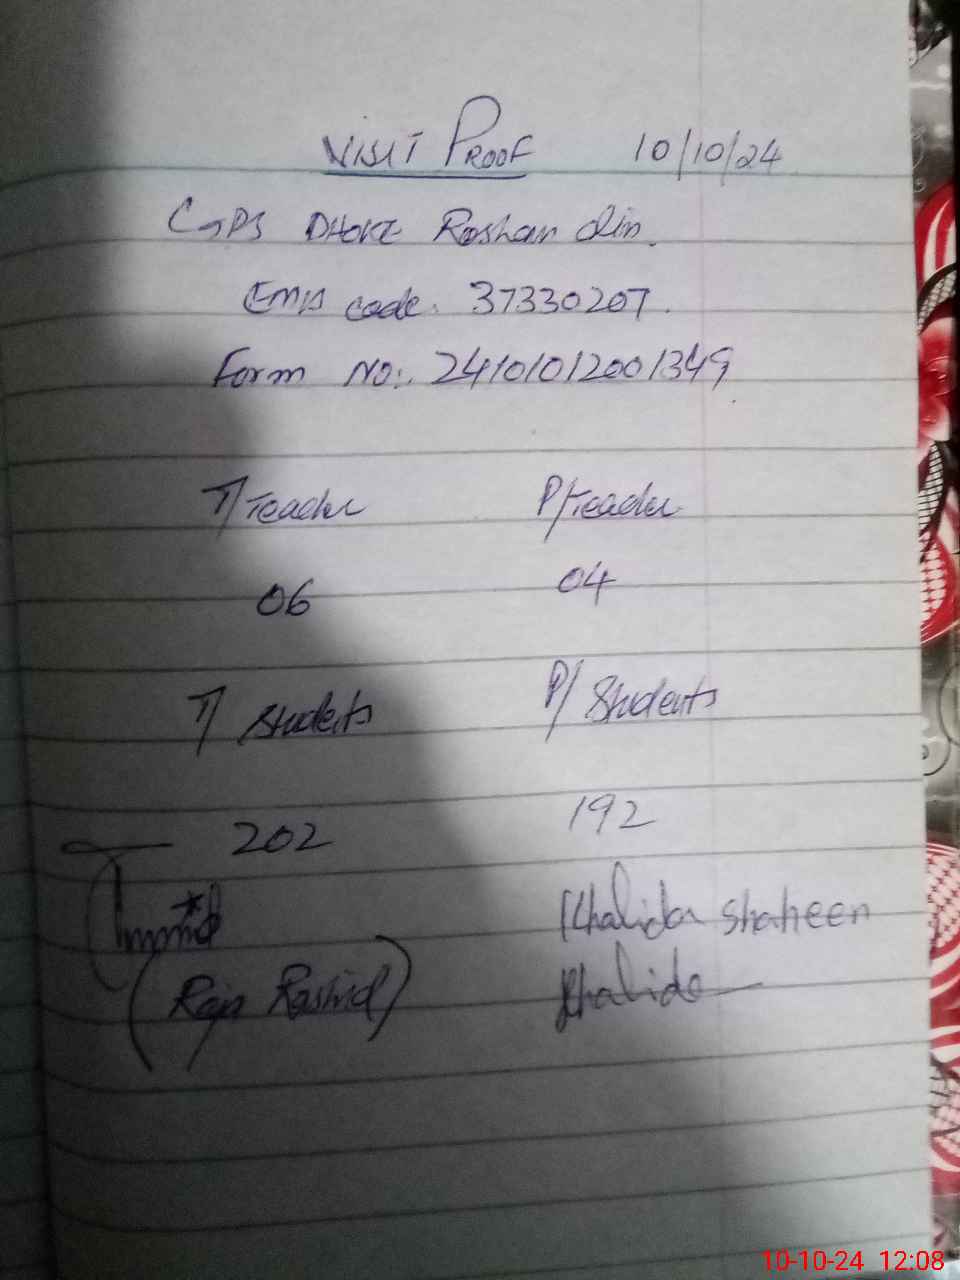 VISIT PROOF 10/10/24
GPS DHOKE Roshan din.
EMIS code: 37330207.
Form No:. 24101012001349
T/Teacher P/Teacher
06 04
T/ Students P/ Students
202 192
Khalida Shaheen
(Raja Rashid) Khalida
10-10-24 12:08